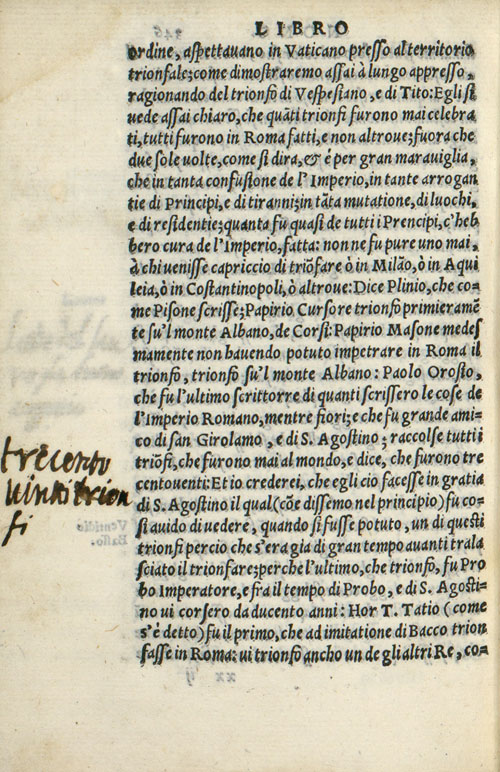 LIBRO
ordine, aspettauano in Vaticano presso al territorio
trionfale; come dimostraremo assai à lungo appresso,
ragionando del trionfo di Vespesiano, e di Tito: Egli si
uede assai chiaro, che quāti trionfi furono mai celebra
ti, tutti furono in Roma fatti, e non altroue; fuora che
due sole uolte, come si dira, & è per gran marauiglia,
che in tanta confusione de l'Imperio, in tante arrogan
tie di Principi, e di tiranni; in tāta mutatione, di luochi,
e di residentie; quanta fù quasi de tutti i Prencipi, c'heb
bero cura de l'Imperio, fatta: non ne fu pure uno mai,
à chi uenisse capriccio di triōfare ò in Milāo, ò in Aqui
leia, ò in Costantinopoli, ò altroue: Dice Plinio, che co-
me Pisone scrisse; Papirio Cursore trionfò primieramē
te su'l monte Albano, de Corsi: Papirio Masone medes
mamente non hauendo potuto impetrare in Roma il
trionfo, trionfò su'l monte Albano: Paolo Orosio,
che fu l'ultimo scrittorre di quanti scrissero le cose de
l'Imperio Romano, mentre fiorì; e che fu grande ami-
co di san Girolamo, e di S. Agostino; raccolse tutti i
triōfi, che furono mai al mondo, e dice, che furono tre
centouenti: Et io crederei, che egli cio facesse in gratia
di S. Agostino il qual (cōe dissemo nel principio) fu co-
sì auido di uedere, quando si fusse potuto, un di questi
trionfi percio che s'era gia di gran tempo auanti trala
sciato il trionfare; perche l'ultimo, che trionfò, fu Pro
bo Imperatore, e frà il tempo di Probo, e di S. Agosti-
no ui corsero da ducento anni: Hor T. Tatio (come
s'è detto) fu il primo, che ad imitatione di Bacco trion
fasse in Roma: ui trionfò ancho un de gli altri Re, co-
trecento
uinti trion
fi